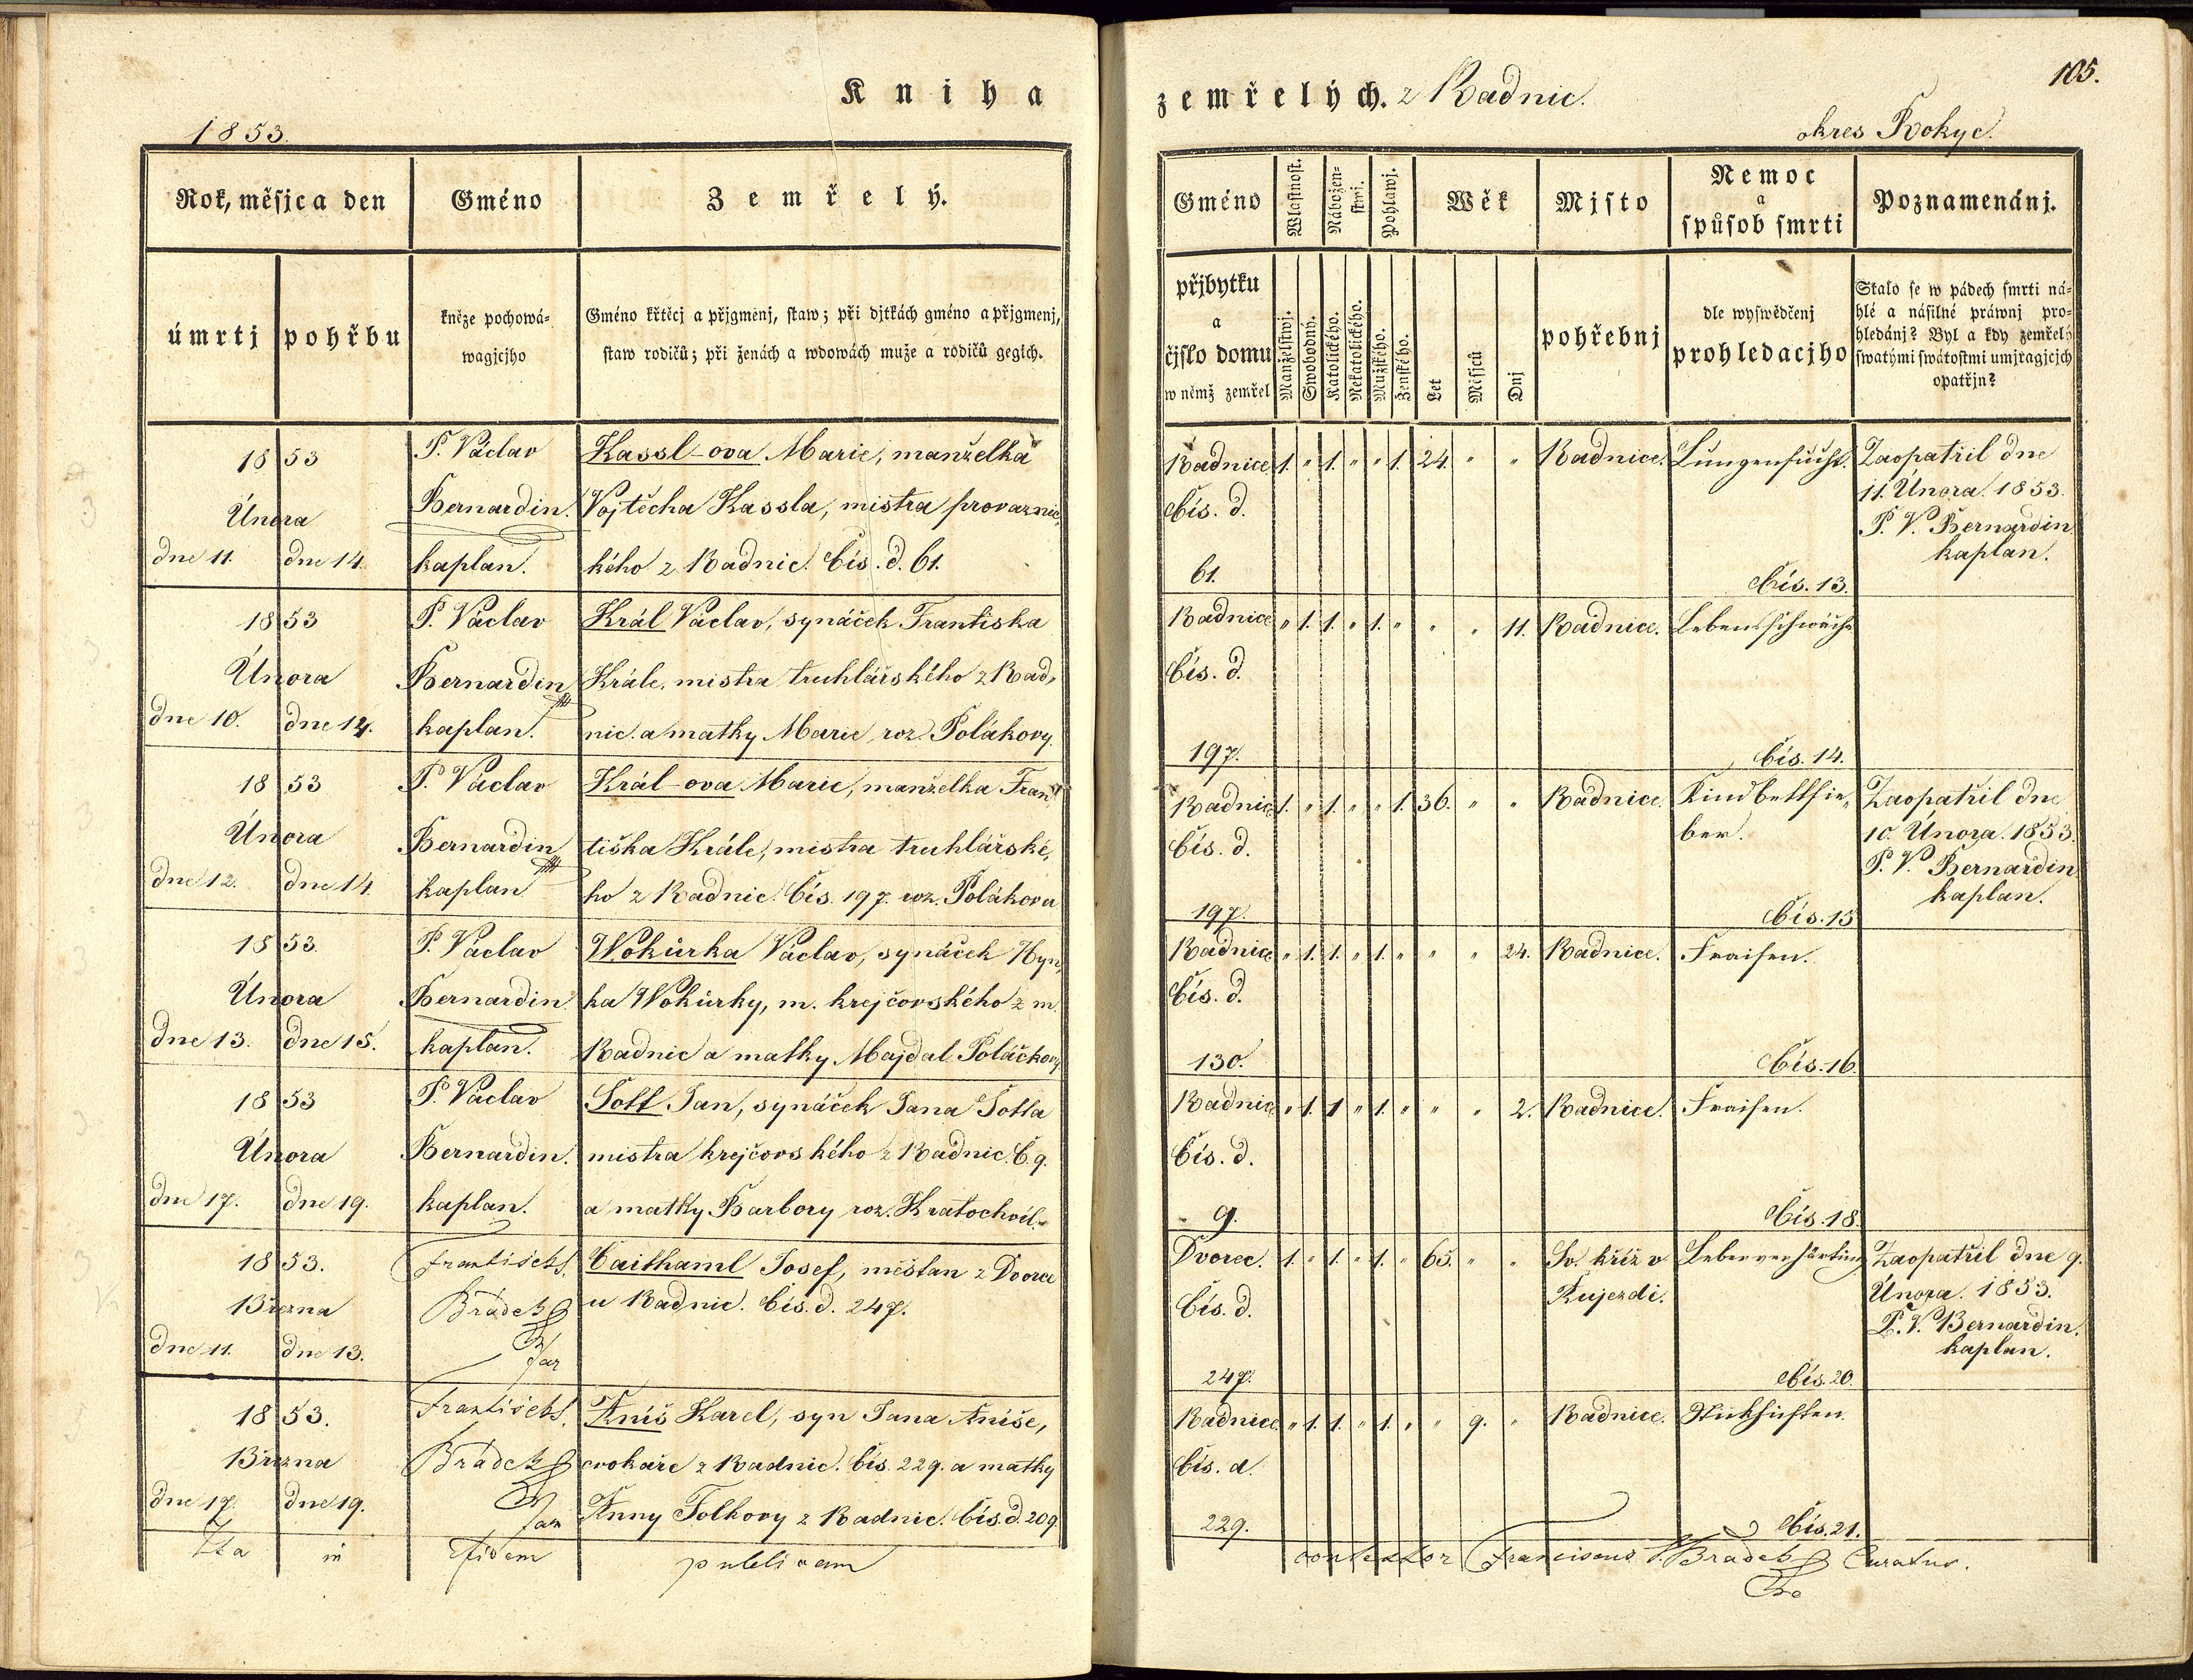 Kniha
1853.
Rok, měsjc a den
Gméno
Zemřelý.
úmrtj
pohřbu
kněze pochowá-
wagjcjho
Gméno křtěcj a přjgmenj, staw; při djtkách gméno a přjgmenj,
staw rodičů; při ženách a wdowách muže a rodičů gegich.
1853
Února
dne 11. dne 14.
P. Václav
Bernardin.
kaplan.
Kassl-ova Marie, manželka
Vojtěcha Kassla, mistra provaznic,
kého z Radnic. Čís. d. 61.
1853
Února
dne 10. dne 12.
P. Václav
Bernardin
kaplan.
Král Václav, synáček Frantiska
Krále, mistra truhlářského z Rad,
nic. a matky Marie, roz. Polákovy.
1853
Února
dne 12. dne 14.
P. Václav
Bernardin
kaplan
Král-ova Marie, manželka Fran
tiška Krále, mistra truhlářské,
ho z Radnic. Čís. 197. roz. Polákova
1853.
Února
dne 13. dne 15.
P. Václav
Bernardin.
kaplan.
Wokůrka Václav, synáček Hyn,
ka Wokůrky, m. krejčovského z m.
Radnic a matky Majdal. Poláčkovy
1853
Února
dne 17. dne 19.
P. Václav
Bernardin.
kaplan.
Šott Jan, synáček Jana Šotta
mistra krejčovského z Radnic. Č. 9.
a matky Barbory roz. Kratochvíl.
1853.
Března
dne 11. dne 13.
Frantisek S.
Brádek
far
Čaithaml Josef,měšťan z Dvorce
u Radnic. Čís. d. 247.
1853.
Března
dne 17. dne 19.
František S.
Brádek
far
Aniš Karel, syn Jana Aniše,
cvokaře z Radnic. Čís. 229. a matky
Anny Folkovy z Radnic. Čís. d. 209
Ita in fidem publicam
zemřelých. z Radnic.
105.
okres Rokyc.
Gméno
Wlastnost.
Nábožen-
stwj.
Pohlawj.
Wěk
Mjsto
Nemoc
a
spůsob smrti
Poznamenánj.
přjbytku
a
čjslo domu
w němž zemřel
Manželstwj.
Swobodný.
Katolického.
Nekatolického.
Mužského.
Ženského.
Let
Měsjců
Dnj
pohřebnj
dle wyswědčenj
prohledacjho
Stalo se w pádech smrti ná-
hlé a násilné práwnj pro-
hledánj? Byl a kdy zemřelý
swatými swátostmi umjragjcjch
opatřjn?
Radnice 1. " 1. " " 1. 24. " " Radnice. Lungensucht. Zaopatřil dne
Čís. d. 11. Února. 1853.
P. V. Bernardin
kaplan.
61. Čís. 13.
Radnice " 1. 1. " 1. " " " 11. Radnice. Lebensschwäche
Čís. d.
197. Čís. 14.
Radnice 1. " 1. " " 1. 36. " " Radnice. Kindbettfie, Zaopatřil dne
Čís. d. ber. 10. Února. 1853.
P. V. Bernardin
kaplan.
197. Čís. 15
Radnice " 1. 1. " 1. " " " 24. Radnice. Fraisen.
Čís. d.
130. Čís. 16.
Radnice " 1. 1 " 1. " " " 2. Radnice. Fraisen.
Čís. d.
9. Čís. 18.
Dvorec. 1. " 1. " 1. " 65. " " Sv. kříž v Leberverhärtung Zaopatřil dne 9.
Čís. d. Kujezdi. Února. 1853.
P. V. Bernardin.
kaplan.
247. Čís. 20.
Radnice " 1. 1. " 1. " " 9. " Radnice. Stickhusten.
Čís. d.
229. Čís. 21.
contextor Franciscus S. Bradek Curatus.